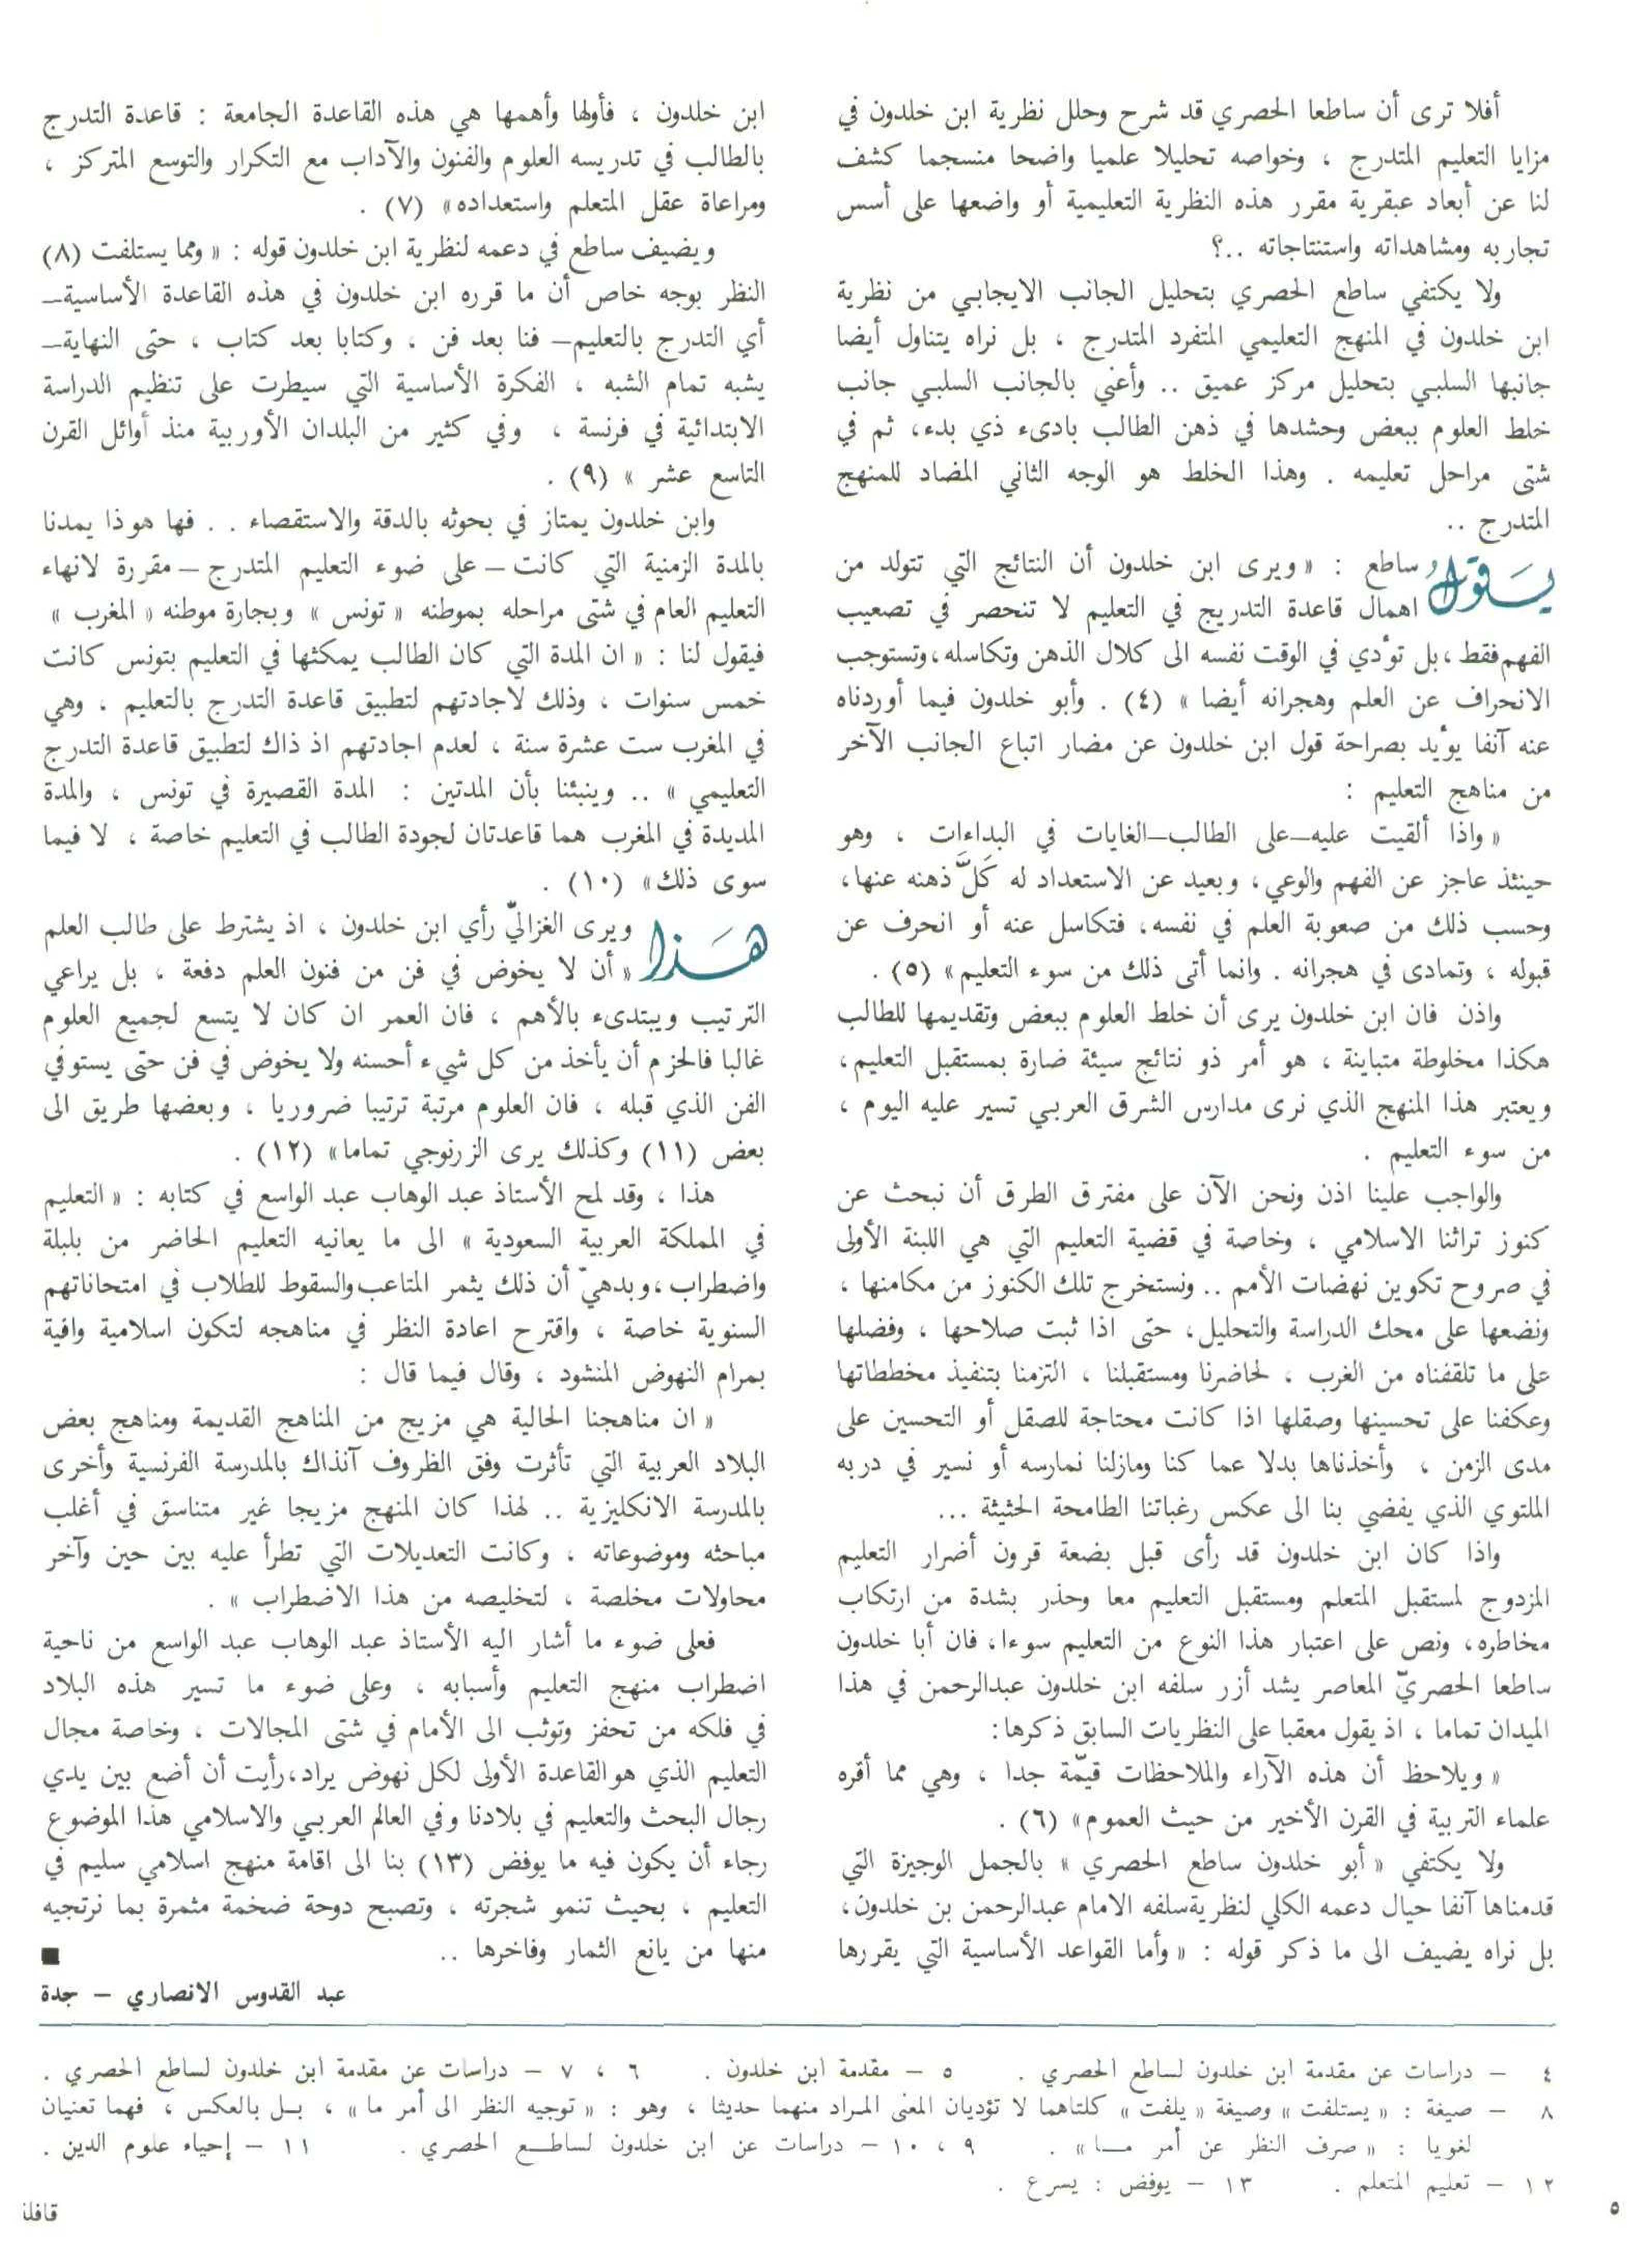 أفلا ترى أن ساطعا الحصري قد شرح وحلل نظرية ابن خلدون في
مزايا التعليم المتدرج ، وخواصه تحليلا علميا واضحا منسجما كشف
لنا عن أبعاد عبقرية مقرر هذه النظرية التعليمية أو واضعها على أسس
تجاربه ومشاهداته واستنتاجاته ..؟
ولا يكتفي ساطع الحصري بتحليل الجانب الايجابي من نظرية
ابن خلدون في المنهج التعليمي المتفرد المتدرج ، بل نراه يتناول أيضا
جانبها السلبي بتحليل مركز عميق .. وأعني بالجانب السلبي جانب
خلط العلوم ببعض وحشدها في ذهن الطالب بادىء ذي بدء، ثم في
شتى مراحل تعليمه . وهذا الخلط هو الوجه الثاني المضاد للمنهج
المتدرج ..
يَقولُ ساطع : « ويرى ابن خلدون أن النتائج التي تتولد من
اهمال قاعدة التدريج في التعليم لا تنحصر في تصعيب
الفهم فقط ، بل تؤدي في الوقت نفسه الى كلال الذهن وتكاسله ، وتستوجب
الانحراف عن العلم وهجرانه أيضا » (٤) . وأبو خلدون فيما أوردناه
عنه آنفا يؤيد بصراحة قول ابن خلدون عن مضار اتباع الجانب الآخر
من مناهج التعليم :
« واذا ألقيت عليه—على الطالب—الغايات في البداءَات ، وهو
حينئذ عاجز عن الفهم والوعي ، وبعيد عن الاستعداد له كَلَّ ذهنه عنها،
وحسب ذلك من صعوبة العلم في نفسه، فتكاسل عنه أو انحرف عن
قبوله ، وتمادى في هجرانه . وانما أتى ذلك من سوء التعليم» (٥) .
واذن فان ابن خلدون يرى أن خلط العلوم ببعض وتقديمها للطالب
هكذا مخلوطة متباينة ، هو أمر ذو نتائج سيئة ضارة بمستقبل التعليم،
ويعتبر هذا المنهج الذي نرى مدارس الشرق العربي تسير عليه اليوم ،
من سوء التعليم .
والواجب علينا اذن ونحن الآن على مفترق الطرق أن نبحث عن
كنوز تراثنا الاسلامي ، وخاصة في قضية التعليم التي هي اللبنة الأولى
في صروح تكوين نهضات الأمم .. ونستخرج تلك الكنوز من مكامنها ،
ونضعها على محك الدراسة والتحليل، حتى اذا ثبت صلاحها ، وفضلها
على ما تلقفناه من الغرب ، لحاضرنا ومستقبلنا ، التزمنا بتنفيذ مخططاتها
وعكفنا على تحسينها وصقلها اذا كانت محتاجة للصقل أو التحسين على
مدى الزمن ، وأخذناها بدلا عما كنا ومازلنا نمارسه أو نسير في دربه
الملتوي الذي يفضي بنا الى عكس رغباتنا الطامحة الحثيثة ...
واذا كان ابن خلدون قد رأى قبل بضعة قرون أضرار التعليم
المزدوج لمستقبل المتعلم ومستقبل التعليم معا وحذر بشدة من ارتكاب
مخاطره، ونص على اعتبار هذا النوع من التعليم سوءا، فان أبا خلدون
ساطعا الحصريّ المعاصر يشد أزر سلفه ابن خلدون عبدالرحمن في هذا
الميدان تماما ، اذ يقول معقبا على النظريات السابق ذكرها:
« ويلاحظ أن هذه الآراء والملاحظات قيّمة جدا ، وهي مما أقره
علماء التربية في القرن الأخير من حيث العموم» (٦) .
ولا يكتفي «أبو خلدون ساطع الحصري » بالجمل الوجيزة التي
قدمناها آنفا حيال دعمه الكلي لنظرية سلفه الامام عبدالرحمن بن خلدون،
بل نراه يضيف الى ما ذكر قوله : « وأما القواعد الأساسية التي يقررها
ابن خلدون ، فأولها وأهمها هي هذه القاعدة الجامعة : قاعدة التدرج
بالطالب في تدريسه العلوم والفنون والآداب مع التكرار والتوسع المتركز ،
ومراعاة عقل المتعلم واستعداده» (٧) .
ويضيف ساطع في دعمه لنظرية ابن خلدون قوله : « ومما يستلفت (٨)
النظر بوجه خاص أن ما قرره ابن خلدون في هذه القاعدة الأساسية—
أي التدرج بالتعليم— فنا بعد فن ، وكتابا بعد كتاب ، حتى النهاية—
يشبه تمام الشبه ، الفكرة الأساسية التي سيطرت على تنظيم الدراسة
الابتدائية في فرنسة ، وفي كثير من البلدان الأوربية منذ أوائل القرن
التاسع عشر » (٩) .
وابن خلدون يمتاز في بحوثه بالدقة والاستقصاء . . فها هو ذا يمدنا
بالمدة الزمنية التي كانت — على ضوء التعليم المتدرج — مقررة لانهاء
التعليم العام في شتى مراحله بموطنه « تونس » وبجارة موطنه « المغرب »
فيقول لنا : « ان المدة التي كان الطالب يمكثها في التعليم بتونس كانت
خمس سنوات ، وذلك لاجادتهم لتطبيق قاعدة التدرج بالتعليم ، وهي
في المغرب ست عشرة سنة ، لعدم اجادتهم اذ ذاك لتطبيق قاعدة التدرج
التعليمي » .. وينبئنا بأن المدتين : المدة القصيرة في تونس ، والمدة
المديدة في المغرب هما قاعدتان لجودة الطالب في التعليم خاصة ، لا فيما
سوى ذلك» (١٠) .
هَذا ويرى الغزاليّ رأي ابن خلدون ، اذ يشترط على طالب العلم
« أن لا يخوض في فن من فنون العلم دفعة ، بل يراعي
الترتيب ويبتدىء بالأهم ، فان العمر ان كان لا يتسع لجميع العلوم
غالبا فالحزم أن يأخذ من كل شيء أحسنه ولا يخوض في فن حتى يستوفي
الفن الذي قبله ، فان العلوم مرتبة ترتيبا ضروريا ، وبعضها طريق الى
بعض (١١) وكذلك يرى الزرنوجي تماما» (١٢) .
هذا ، وقد لمح الأستاذ عبد الوهاب عبد الواسع في كتابه : « التعليم
في المملكة العربية السعودية » الى ما يعانيه التعليم الحاضر من بلبلة
واضطراب ، وبدهيّ أن ذلك يثمر المتاعب والسقوط للطلاب في امتحاناتهم
السنوية خاصة ، واقترح اعادة النظر في مناهجه لتكون اسلامية وافية
بمرام النهوض المنشود ، وقال فيما قال :
« ان مناهجنا الحالية هي مزيج من المناهج القديمة ومناهج بعض
البلاد العربية التي تأثرت وفق الظروف آنذاك بالمدرسة الفرنسية وأخرى
بالمدرسة الانكليزية .. لهذا كان المنهج مزيجا غير متناسق في أغلب
مباحثه وموضوعاته ، وكانت التعديلات التي تطرأ عليه بين حين وآخر
محاولات مخلصة ، لتخليصه من هذا الاضطراب » .
فعلى ضوء ما أشار اليه الأستاذ عبد الوهاب عبد الواسع من ناحية
اضطراب منهج التعليم وأسبابه ، وعلى ضوء ما تسير هذه البلاد
في فلكه من تحفز وتوثب الى الأمام في شتى المجالات ، وخاصة مجال
التعليم الذي هو القاعدة الأولى لكل نهوض يراد، رأيت أن أضع بين يدي
رجال البحث والتعليم في بلادنا وفي العالم العربي والاسلامي هذا الموضوع
رجاء أن يكون فيه ما يوفض (١٣) بنا الى اقامة منهج اسلامي سليم في
التعليم ، بحيث تنمو شجرته ، وتصبح دوحة ضخمة مثمرة بما نرتجيه
منها من يانع الثمار وفاخرها .. ■
عبد القدوس الانصاري — جدة
٤ — دراسات عن مقدمة ابن خلدون لساطع الحصري . ٥ — مقدمة ابن خلدون . ٦ ، ٧ — دراسات عن مقدمة ابن خلدون لساطع الحصري .
٨ — صيغة : « يستلفت » وصيغة « يلفت » كلتاهما لا تؤديان المعنى المراد منهما حديثا ، وهو : « توجيه النظر الى أمر ما » ، بل بالعكس ، فهما تعنيان
لغويا : « صرف النظر عن أمر ما» . ٩ ، ١٠ — دراسات عن ابن خلدون لساطع الحصري . ١١ — إحياء علوم الدين .
١٢ — تعليم المتعلم . ١٣ — يوفض : يسرع .
٥
قافلة